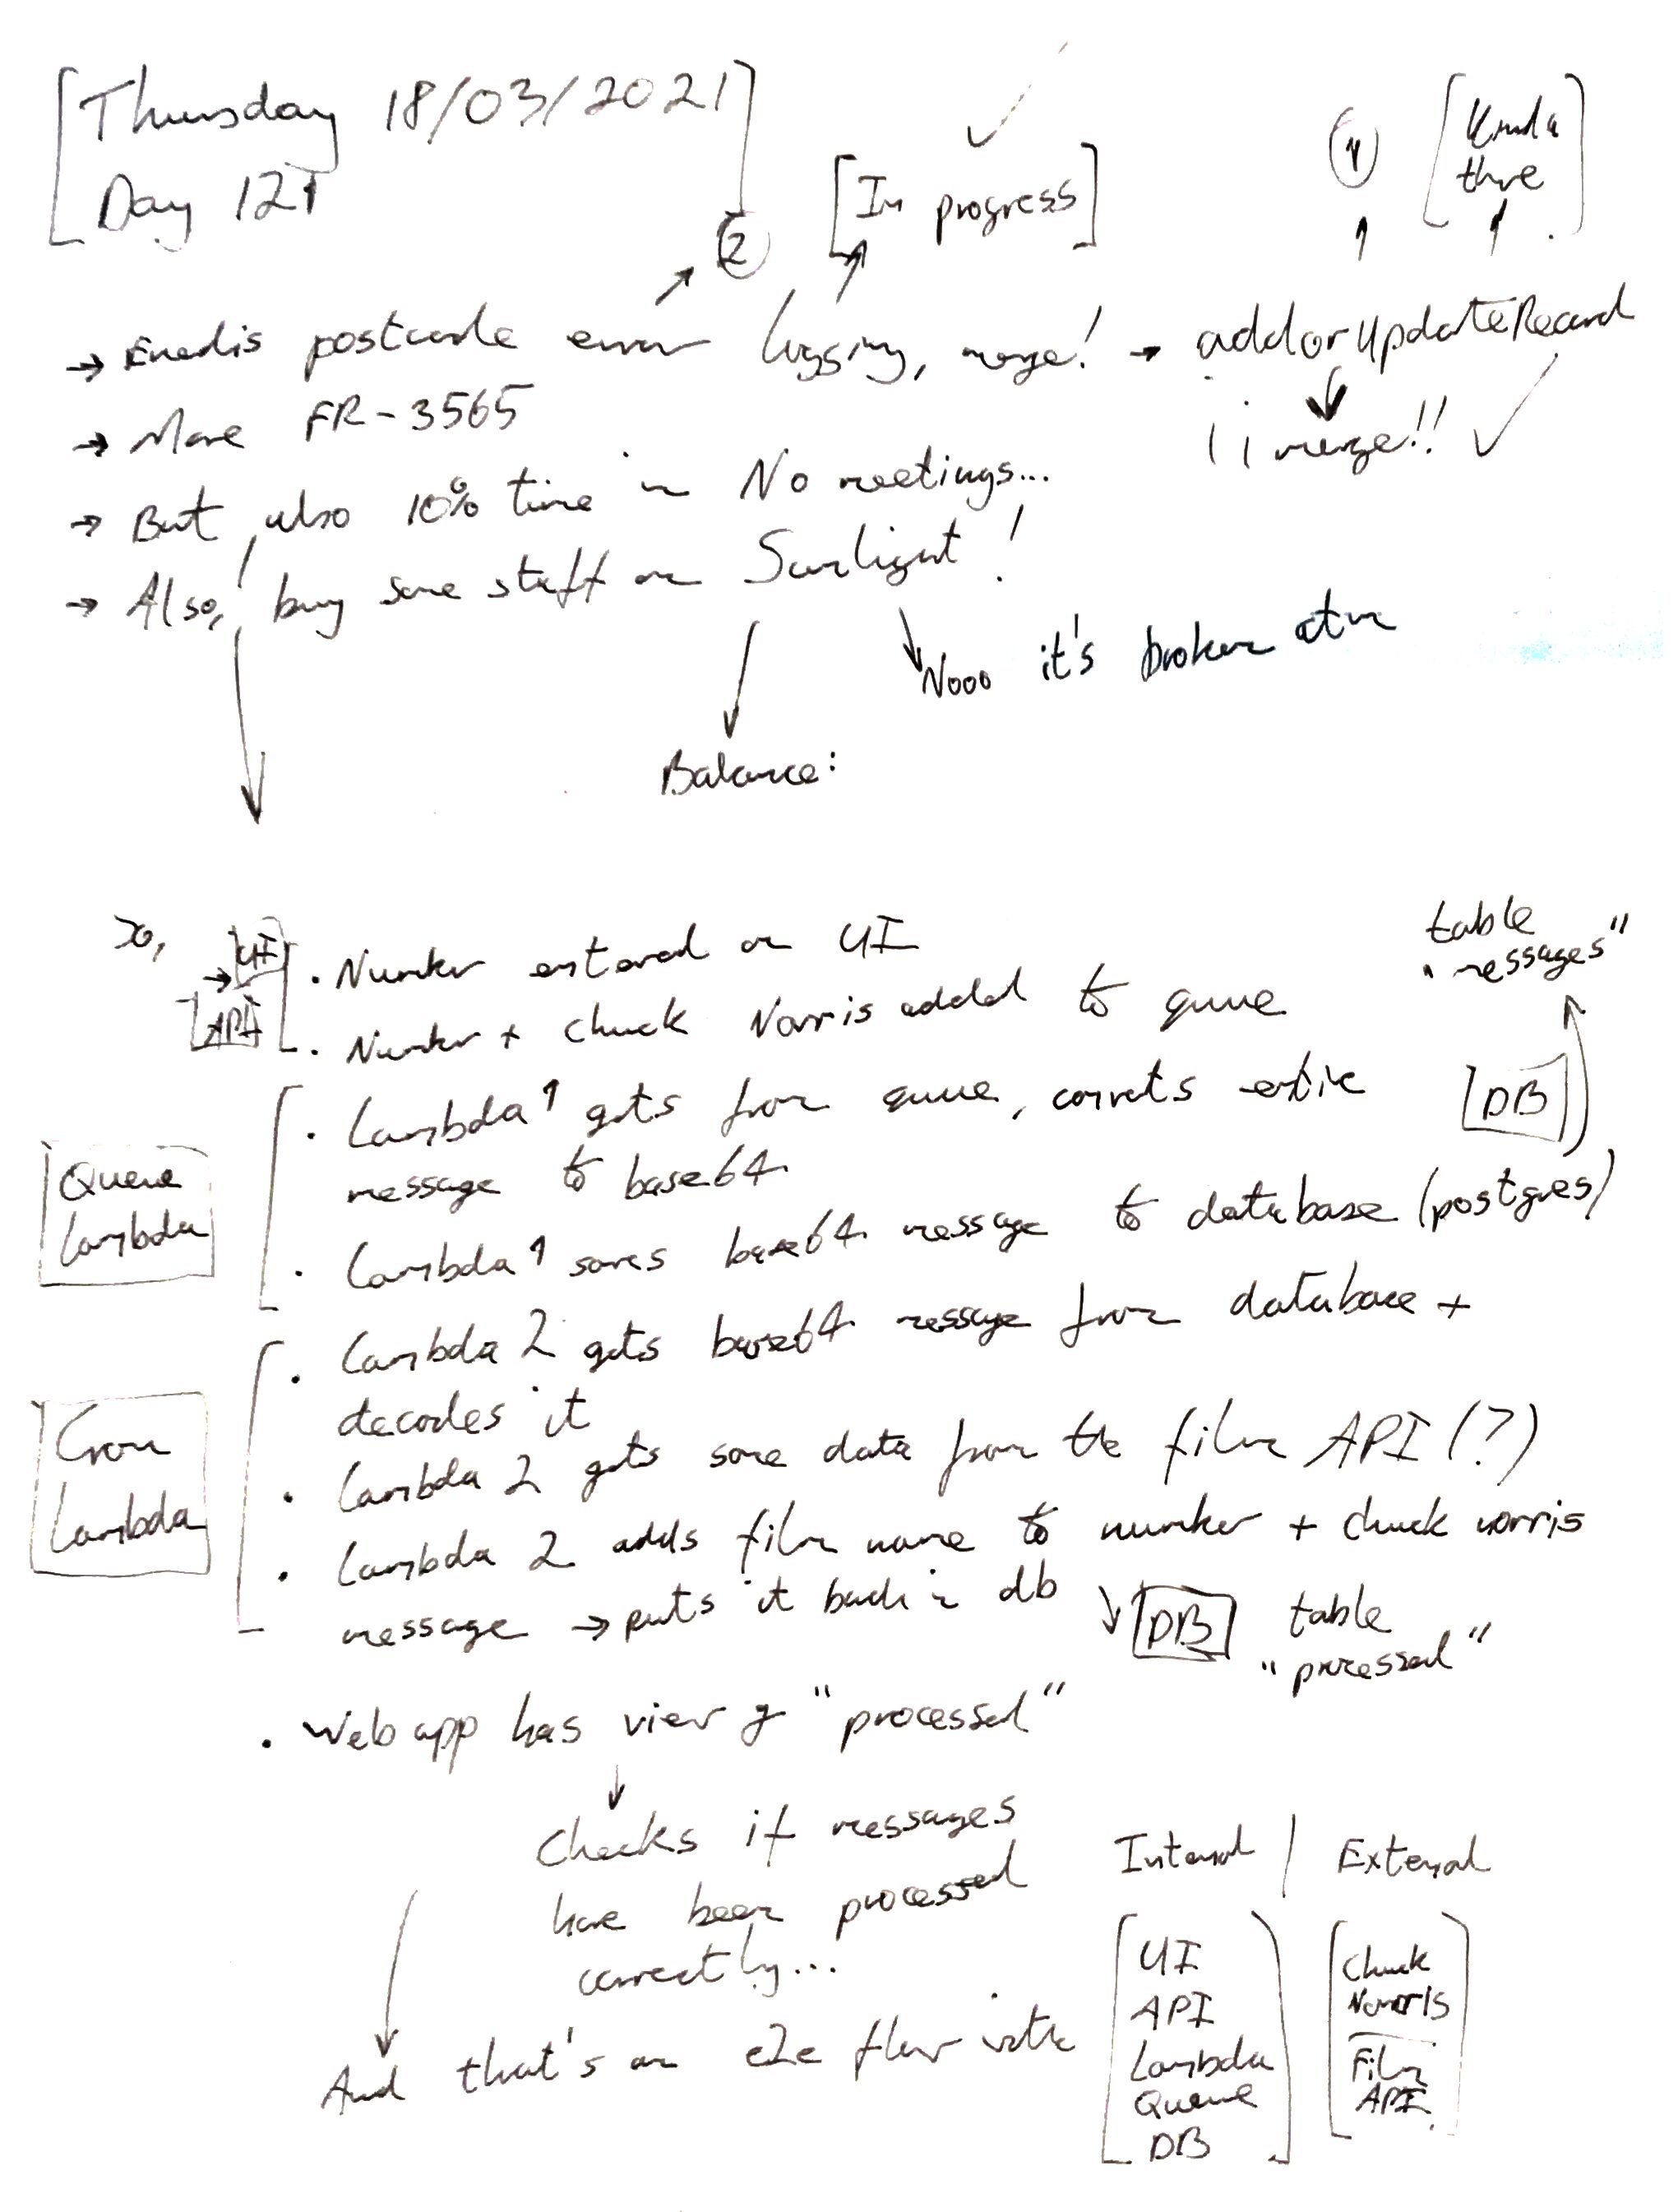 [Thursday 18/03/2021
Day 121]
② [In progress] ✓
① [Kinda there]
→ Enedis postcode error logging, merge! → addorUpdateRecord
→ More FR-3565
merge!! ✓
→ But also 10% time in No meetings...
→ Also, buy some stuff on Sunlight!
Nooo it's broken atm
Balance:
So,
→ [UI] · Number entered on UI
[API] · Number + Chuck Norris added to queue
table
"messages"
[DB]
Queue
Lambda
· Lambda 1 gets from queue, converts entire
message to base64
· Lambda 1 saves base64 message to database (postgres)
Cron
Lambda
· Lambda 2 gets base64 message from database +
decodes it
· Lambda 2 gets some data from the film API (?)
· Lambda 2 adds film name to number + chuck norris
message → puts it back in db
[DB] table
"processed"
· Web app has view of "processed"
Checks if messages
have been processed
correctly...
And that's an e2e flow with
Internal | External
UI
API
Lambda
Queue
DB
Chuck
Norris
Film
API